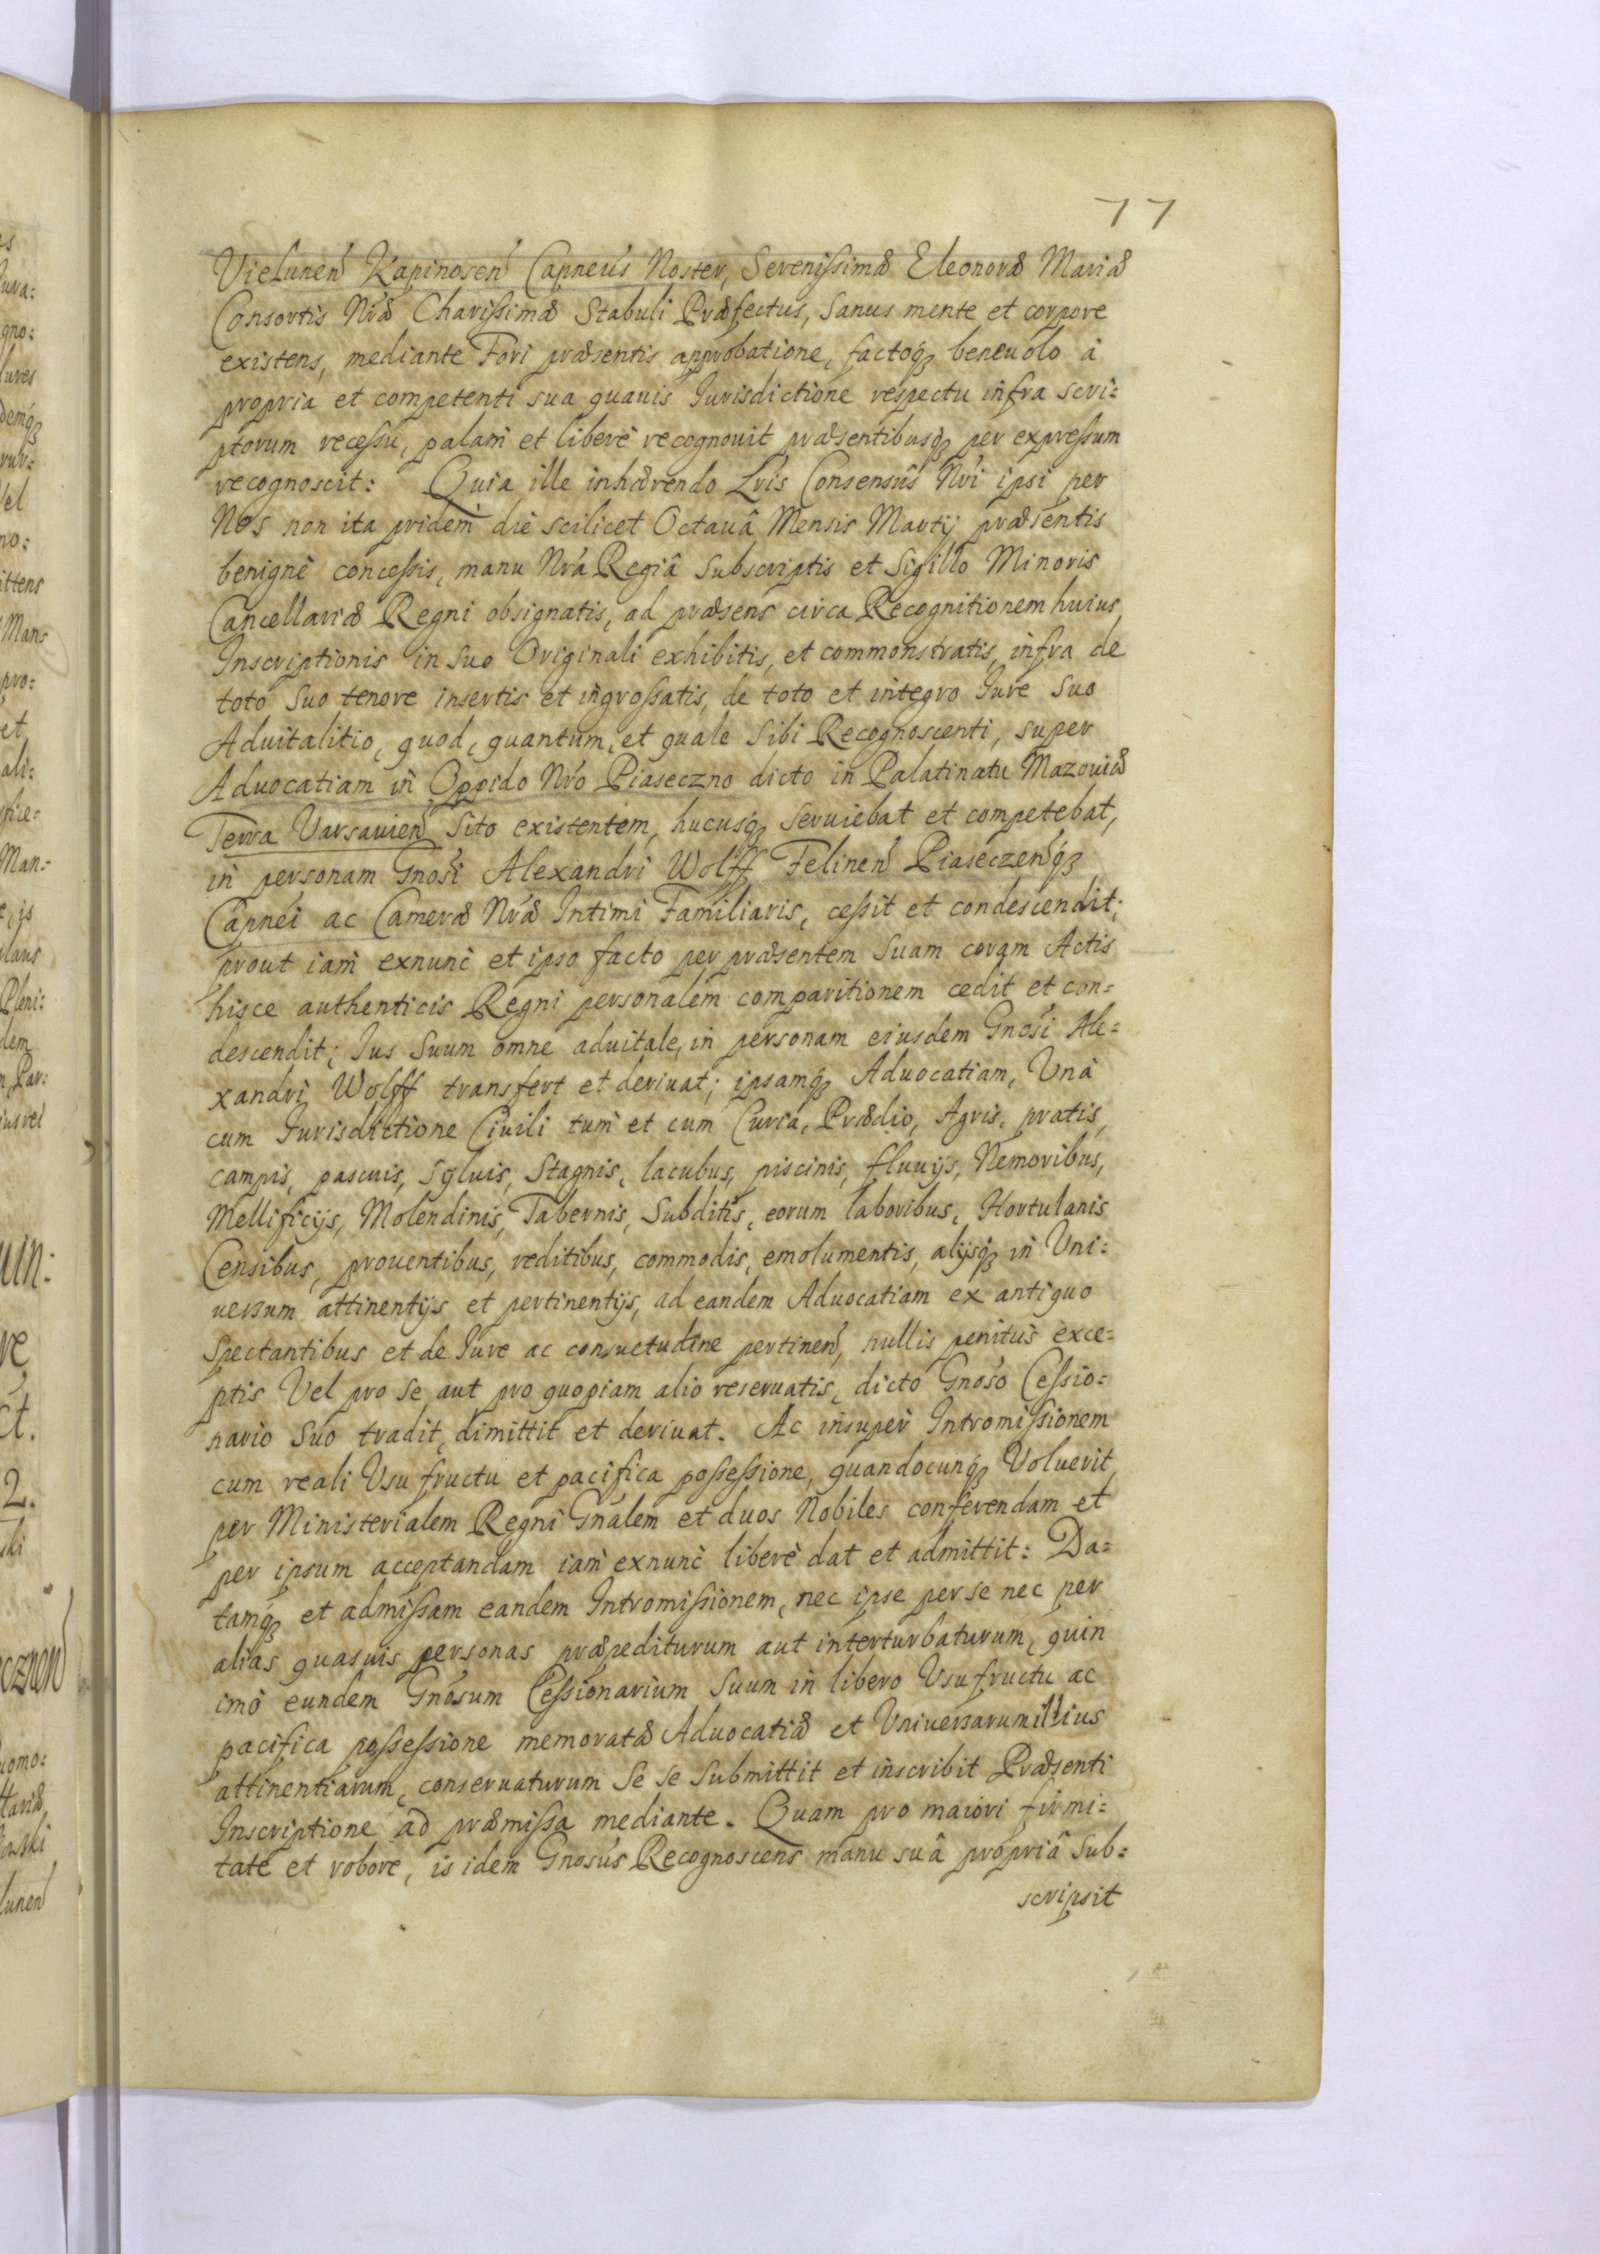 77
Vielunen̄ Kapinosen̄ Capneus Noster, Serenissimæ Eleonoræ Mariæ
Consortis Nræ Charissimæ Stabuli Præfectus, Sanus mente et corpore
existens, mediante Fori præsentis approbatione, factoq́ꝫ beneuolo á
propria et competenti sua quauis Iurisdictione respectu infra scri=
ptorum recessu, palam et liberè recognouit præsentibusq́ꝫ per expressum
recognoscit: Quia ille inhærendo Lris Consensûs Nri ipsi per
Nos non ita pridem die scilicet Octauâ Mensis Martij præsentis
benignè concessis, manu Nra Regiâ Subscriptis et Sigillo Minoris
Cancellariæ Regni obsignatis, ad præsens circa Recognitionem huius
Inscriptionis in Suo Originali exhibitis, et commonstratis, infra de
toto Suo tenore insertis et ingrossatis, de toto et integro Iure Suo
Aduitalitio, quod, quantum, et quale Sibi Recognoscenti, super
Aduocatiam in Oppido Nro Piaseczno dicto in Palatinatu Mazouiæ
Terra Varsauien̄ Sito existentem, hucusq́ꝫ Seruiebat et competebat,
in personam Gnosi Alexandri Wolff Felinen̄ Piaseczen̄q́ꝫ
Capnei ac Cameræ Nræ Intimi Familiaris, cessit et condescendit;
prout iam exnunc et ipso facto per præsentem Suam coram Actis
hisce authenticis Regni personalem comparitionem cedit et con=
descendit; Ius Suum omne aduitale, in personam eiusdem Gnosi Ale=
xandri Wolff transfert et deriuat; ipsamq́ꝫ Aduocatiam, Vnà
cum Iurisdictione Ciuili tum et cum Curia, Prædio, Agris, pratis,
campis, pascuis, Syluis, Stagnis, lacubus, piscinis, fluuijs, Nemoribus,
Mellificijs, Molendinis, Tabernis, Subditis, eorum laboribus, Hortulanis
Censibus, prouentibus, reditibus, commodis, emolumentis, alijsq́ꝫ in Vni=
uersum attinentijs et pertinentijs, ad eandem Aduocatiam ex antiquo
Spectantibus et de Iure ac consuetudine pertinen̄, nullis penitus exce=
ptis Vel pro Se aut pro quopiam alio reseruatis, dicto Gnoso Cessio=
nario Suo tradit, dimittit et deriuat. Ac insuper Intromissionem
cum reali Vsu fructu et pacifica possessione, quandocunq́ꝫ Voluerit,
per Ministerialem Regni Gnalem et duos Nobiles conferendam et
per ipsum acceptandam iam exnunc liberè dat et admittit: Da=
tamq́ꝫ et admissam eandem Intromissionem, nec ipse per se nec per
alias quasuis personas præpediturum aut interturbaturum, quin
imò eundem Gnosum Cessionarium Suum in libero Vsufructu ac
pacifica possessione memoratæ Aduocatiæ et Vniuersarum illius
attinentiarum, conseruaturum Se se Submittit et inscribit Præsenti
Inscriptione ad præmissa mediante. Quam pro maiori firmi=
tate et robore, is idem Gnosus Recognoscens manu suâ propriâ Sub=
scripsit